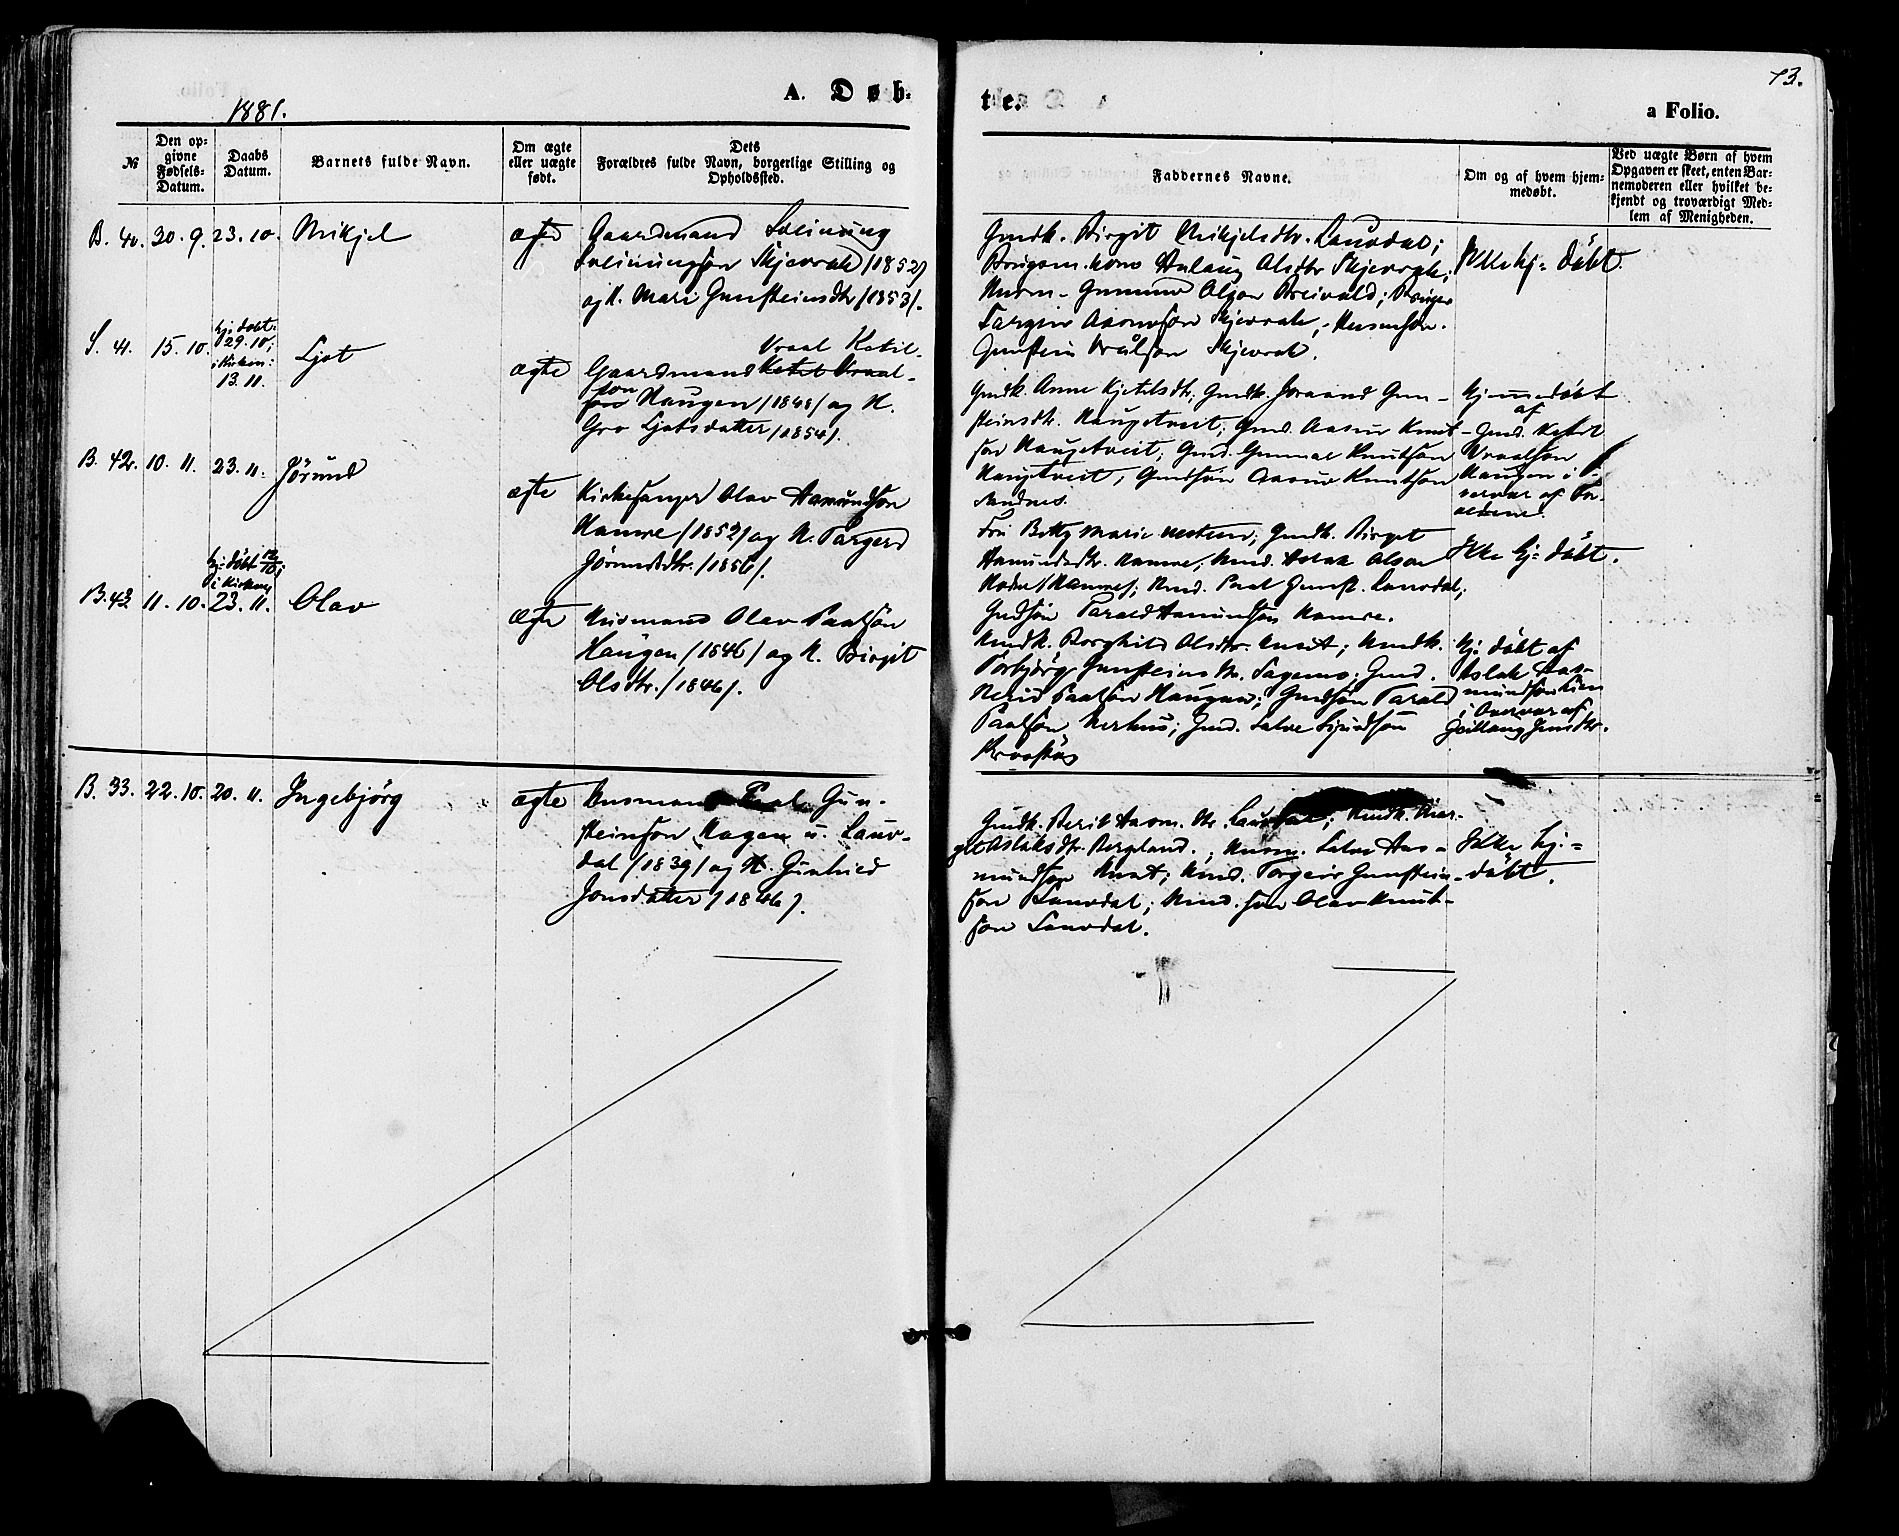 1881.
A. Døb-
te.
73.
a Folio.
№
Den op-
givne
Fødsels-
Datum.
Daabs
Datum.
Barnets fulde Navn.
Om ægte
eller uægte
født.
Dets
Forældres fulde Navn, borgerlige Stilling og
Opholdssted.
Faddernes Navne.
Om og af hvem hjem-
medøbt.
Ved uægte Børn af hvem
Opgaven er skeet, enten Bar-
nemoderen eller hvilket be-
kjendt og troværdigt Med-
lem af Menigheden.
B. 40. 30. 9. 23. 10. Mikjel
ægte
Gaardmand Sveinung
Sveinungson Skjevrak /1852/
og K. Mari Gunsteinsdtr /1853/.
Gmdk. Birgit Mikjelsdtr. Lauvdal;
Brugsm. kone Aslaug Olsdtr Skjevrak;
Husm. Gunnund Olson Breivold; Bruger
Targeir Aaonson Skjevrak, Husmsøn.
Gunstein Vraalson Skjevrak.
Ikke hj= döbt.
S. 41. 15. 10.
hj: döbt:
29. 10;
i Kirken:
13. 11.
Ljot
ægte
Vraal Ketil-
Gaardmand Ketil Vraal-
son
son Haugen /1848/ og K.
Gro Ljotsdatter /1854/.
Gmdk. Anne Kjetilsdtr; Gmdk. Joraand Gun-
steinsdtr. Haugetveit; Gmd. Aasur Knut-
son Haugetveit; Gmd. Gunnar Knutson
Haugetveit; Gmdsøn Aasur Knutson
Sandnes.
Hjemmedöbt
af
Gmd. Ketil
Vraalson
Haugen i O-
vervær af For-
ældrene.
B. 42. 10. 11. 23. 11. Jörund
ægte
Kirkesanger Olav Aamundson
Hamre /1852/ og K. Targerd
Jörundsdtr. /1856/.
Frk Betty Marie; Gmdk. Birgit
Aamundsdtr. Hamre; Gmd. Aslak Olson
Hamre; Gmd. Paal Gunst. Lauvdal;
Gmdsøn Tarald Aamundson Hamre.
Ikke hj= döbt.
B. 43 11. 10.
hj: döbt 12/10;
i Kirken
23. 11. Olav
ægte
Husmand Olav Paalson
Haugen /1846/ og K. Birgit
Olsdtr. /1846/.
Gmdk. Borghild Olsdtr. Kvaat; Gmdk.
Torbjörg Gunsteinsdtr. Fagemo; Gmd.
Nerid Paalson Haugen; Gmdsøn Tarald
Paalson Nerhus; Gmd. Salve Sigurdson
Hj: döbt af
Aslak Aas-
mundson
i Overvær af
Gmdtr.
B. 33. 22. 10. 20. 11. Ingebjörg
ægte
Husmand Paal Gun-
steinson Hagen u. Lauv-
dal /1839/ og K. Gunhild
Jonsdatter /1846/.
Gmdk. Berit Aavm. dtr. Lauvdal; Gmdk. Mar-
git Aslaksdtr. Bergland.; Husm. Salve Aas-
mundson Kvaat; Gmd. Torgeir Gunstein-
son Lauvdal; Gmd. søn Olav Knut-
son Lauvdal.
Ikke hj.=
döbt.